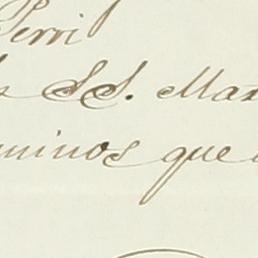 Perri
SS. Ma
minos que